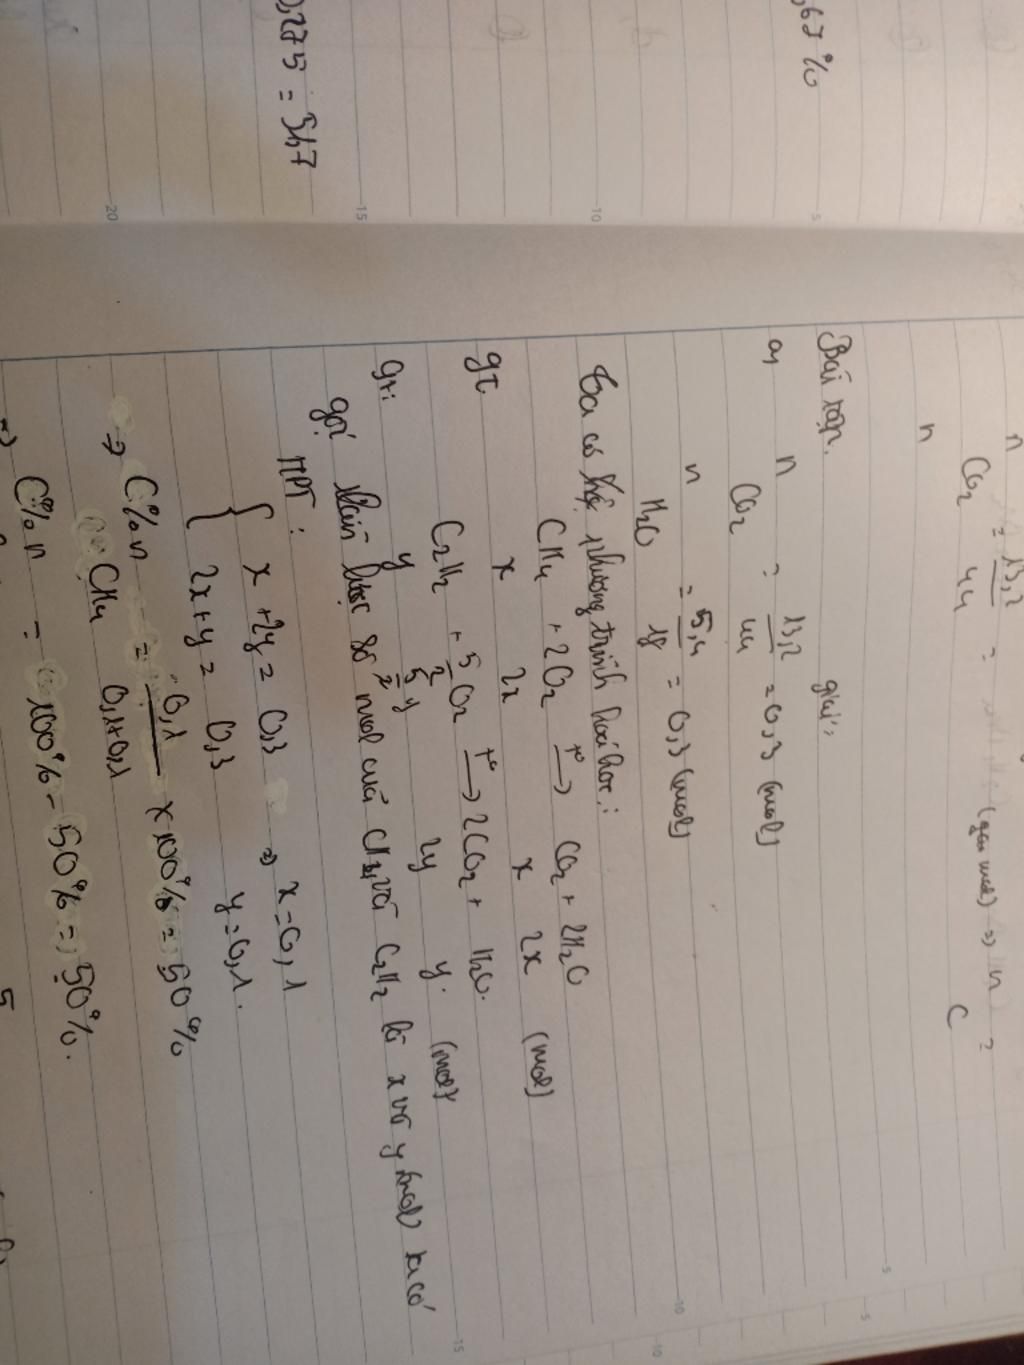 ,67 %
0,275 = 34,7
n CO2 = 13,2 / 44 =
n
Bài tập.
giải:
a, n CO2 = 13,2 / 44 = 0,3 (mol)
n H2O = 5,4 / 18 = 0,3 (mol)
Ta có phương trình hoá học:
CH4 + 2O2 t° → CO2 + 2H2O
gt x 2x x 2x (mol)
C2H2 + 5/2 O2 t° → 2CO2 + H2O.
gt: y 5/2 y 2y y. (mol)
gọi lần lượt số mol của CH4 và C2H2 là x và y (mol) ta có
HPT :
{ x + 2y = 0,3 ⇒ x = 0,1
2x + y = 0,3 y = 0,1.
⇒ C% n CH4 = 0,1 / 0,1+0,1 x 100% = 50%
⇒ C% n = 100% - 50% = 50%.
20
15
10
5
5
10
15
5
10